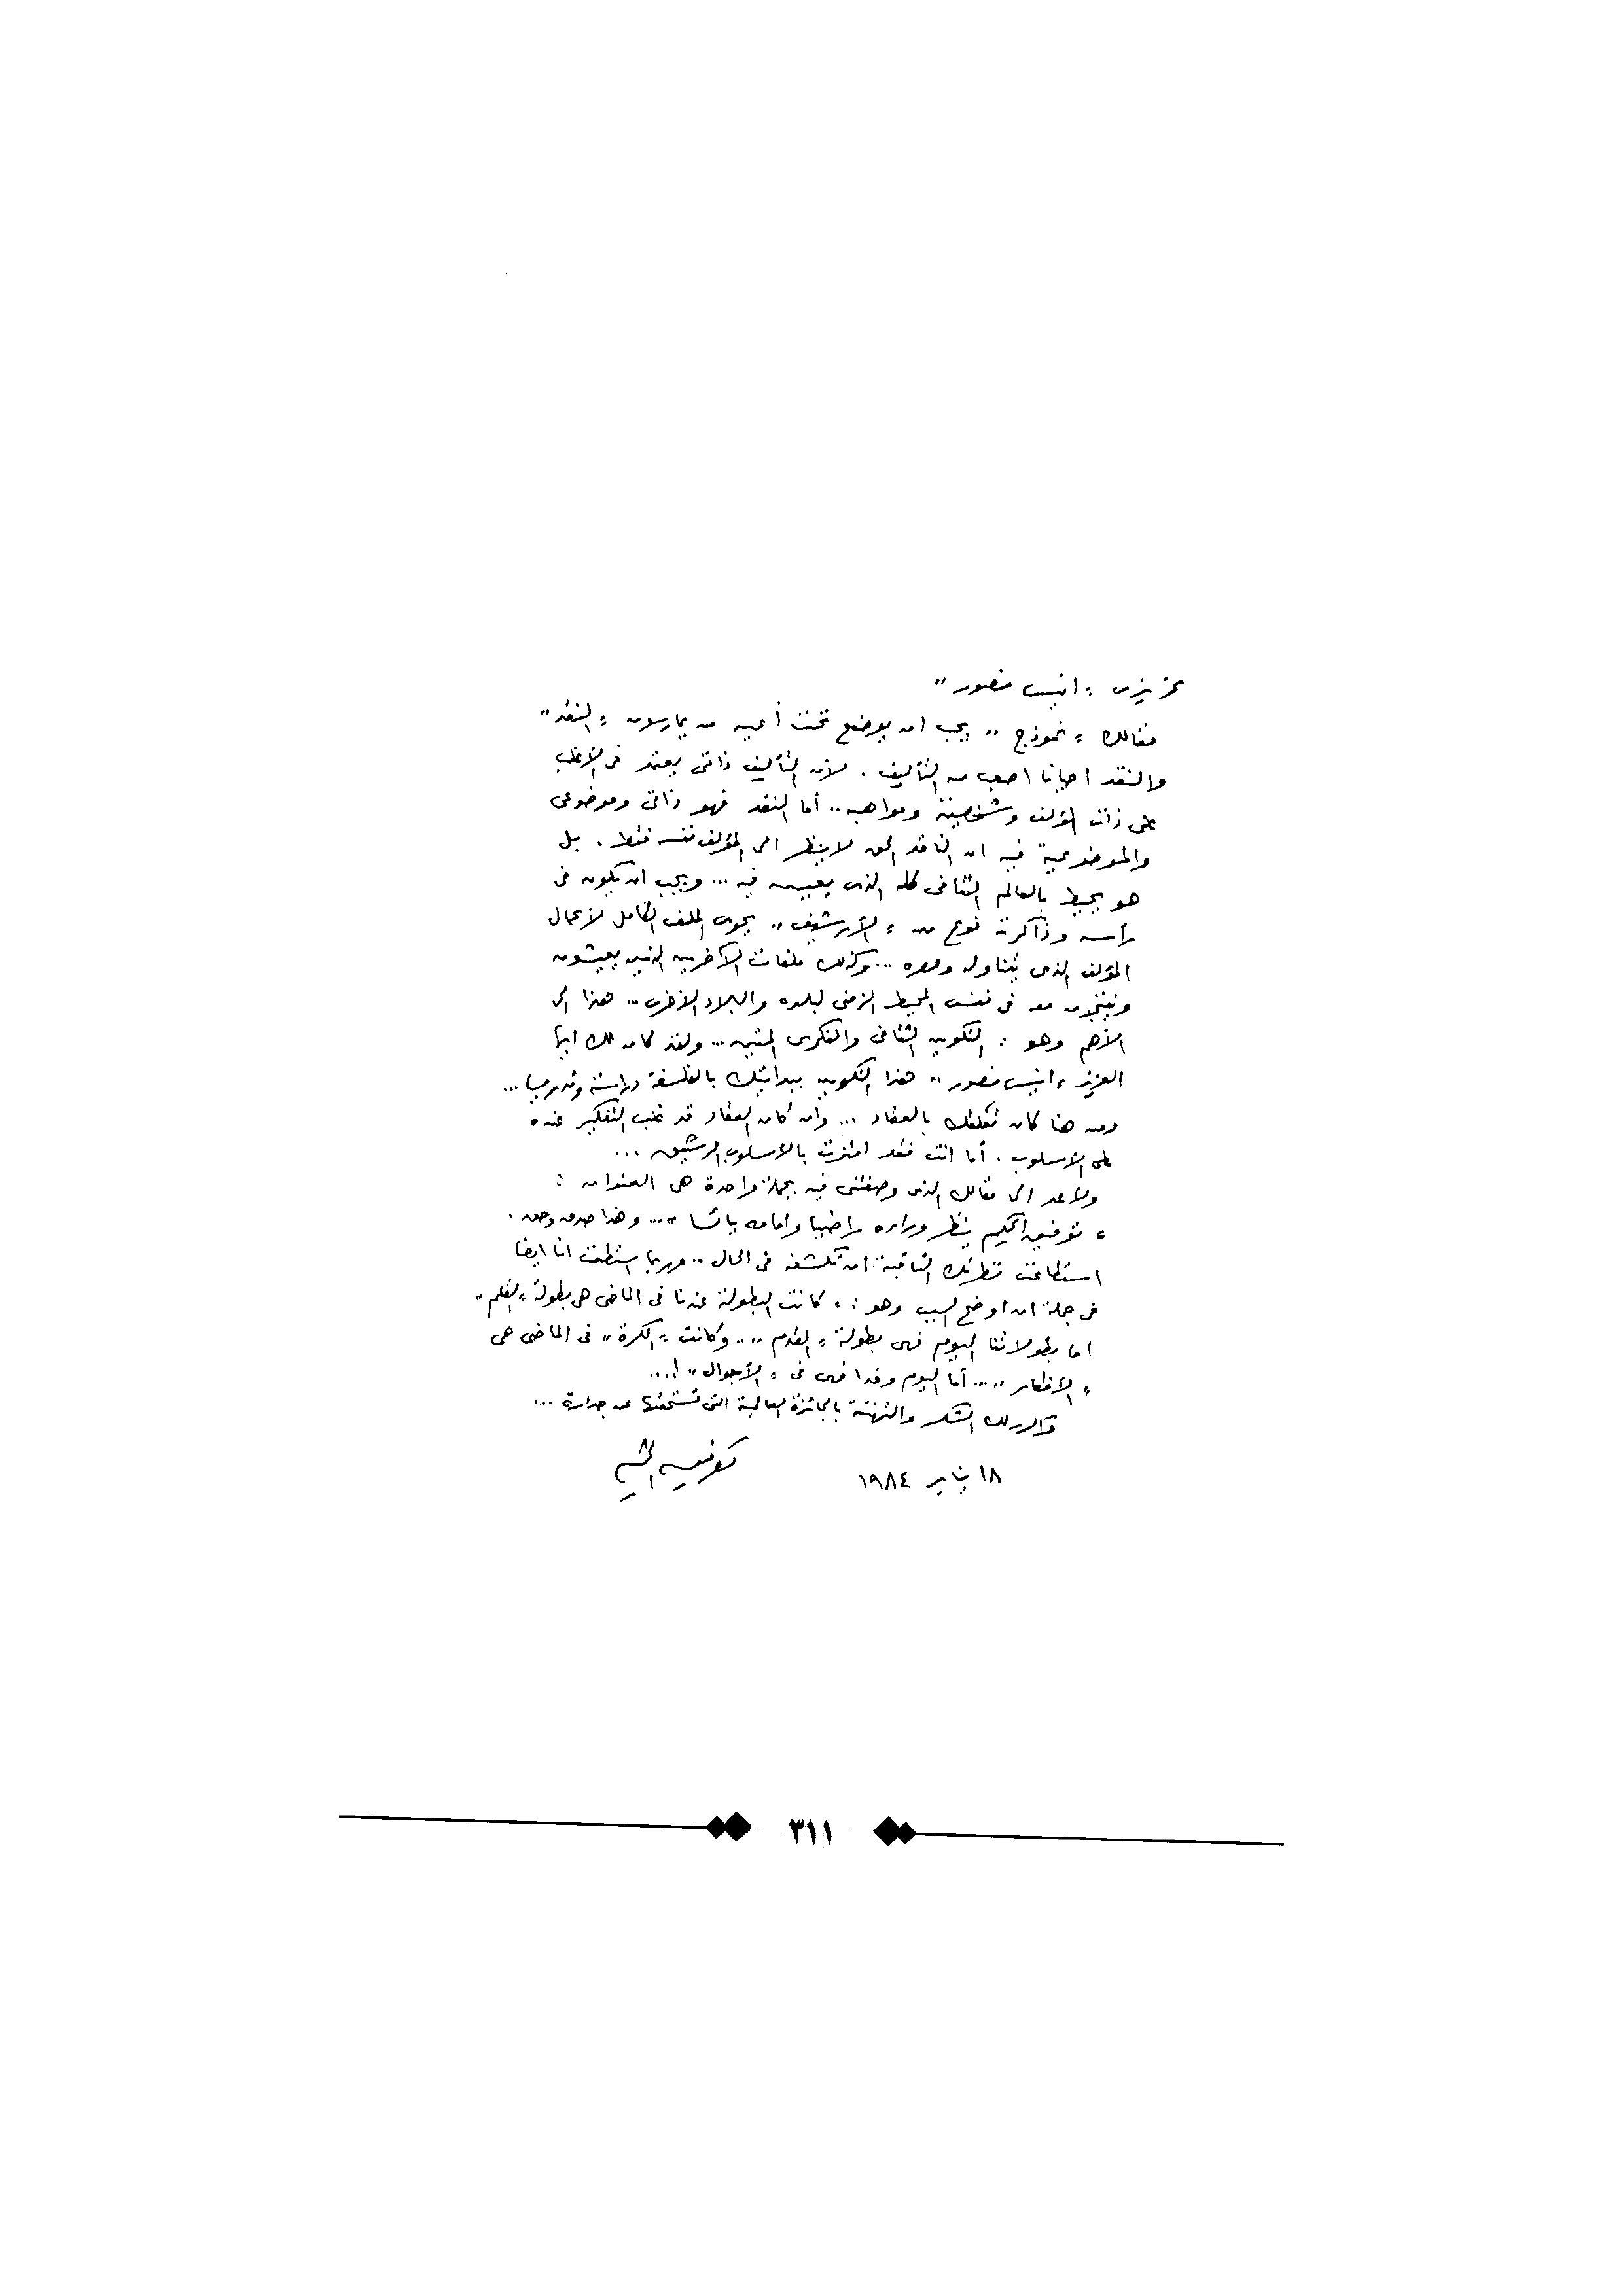 عزيزى « انيس منصور »
مقالك « نموذج » يجب ان يوضع تحت أعين من يمارسون « النقد »
والنقد احيانا اصعب من التأليف . لأن التأليف ذاتى يعتمد فى الاغلب
على ذات المؤلف وشخصيته ومواهبه .. أما النقد فهو ذاتى وموضوعى
والموضوعية فيه ان الناقد الحق لا ينظر الى المؤلف نفسه فقط . بل
هو يحيط بالعالم الثقافى كله الذى يعيش فيه ... ويجب ان يكون فى
رأسه وذاكرته نوع من « الأرشيف » يحوى الملف الكامل لأعمال
المؤلف الذى يتناوله وحده ... وكذلك ملفات الآخرين الذين يعيشون
وينتجون معه فى نفس المحيط الزمنى لبلده والبلاد الأخرى ... هذا الى
الأهم وهو : التكوين الثقافى والفكرى المتين ... ولقد كان لك ايها
العزيز « انيس منصور » هذا التكوين ببدايتك بالفلسفة دراسة وتدريسا ...
ومن هنا كان تعلقك بالعقاد ... وان كان العقاد قد غلب التفكير عنده
على الاسلوب . أما انت فقد امتزت بالأسلوب الرشيق ...
ولأعد الى مقالك الذى وصفتنى فيه بجملة واحدة هى العنوان :
« توفيق الحكيم ينظر وراءه راضيا وامامه يائسا » ... وهذا صدق وحق .
استطاعت نظرتك الثاقبة ان تكشفه فى الحال .. وربما استطعت انا ايضا
فى جملة ان اوضح السبب وهو : « كانت البطولة عندنا فى الماضى هى بطولة « القلم »
اما بطولاتنا اليوم فهى بطولة « القدم » ... وكانت « الكرة » فى الماضى هى
« الأفكار » ... أما اليوم وغدا فهى فى « الأجوال » ! ...
وأكرر لك الشكر والتهنئة بالجائزة العالمية التى تستحقها عن جدارة ...
١٨ يناير ١٩٨٤ توفيق الحكيم
٣١١